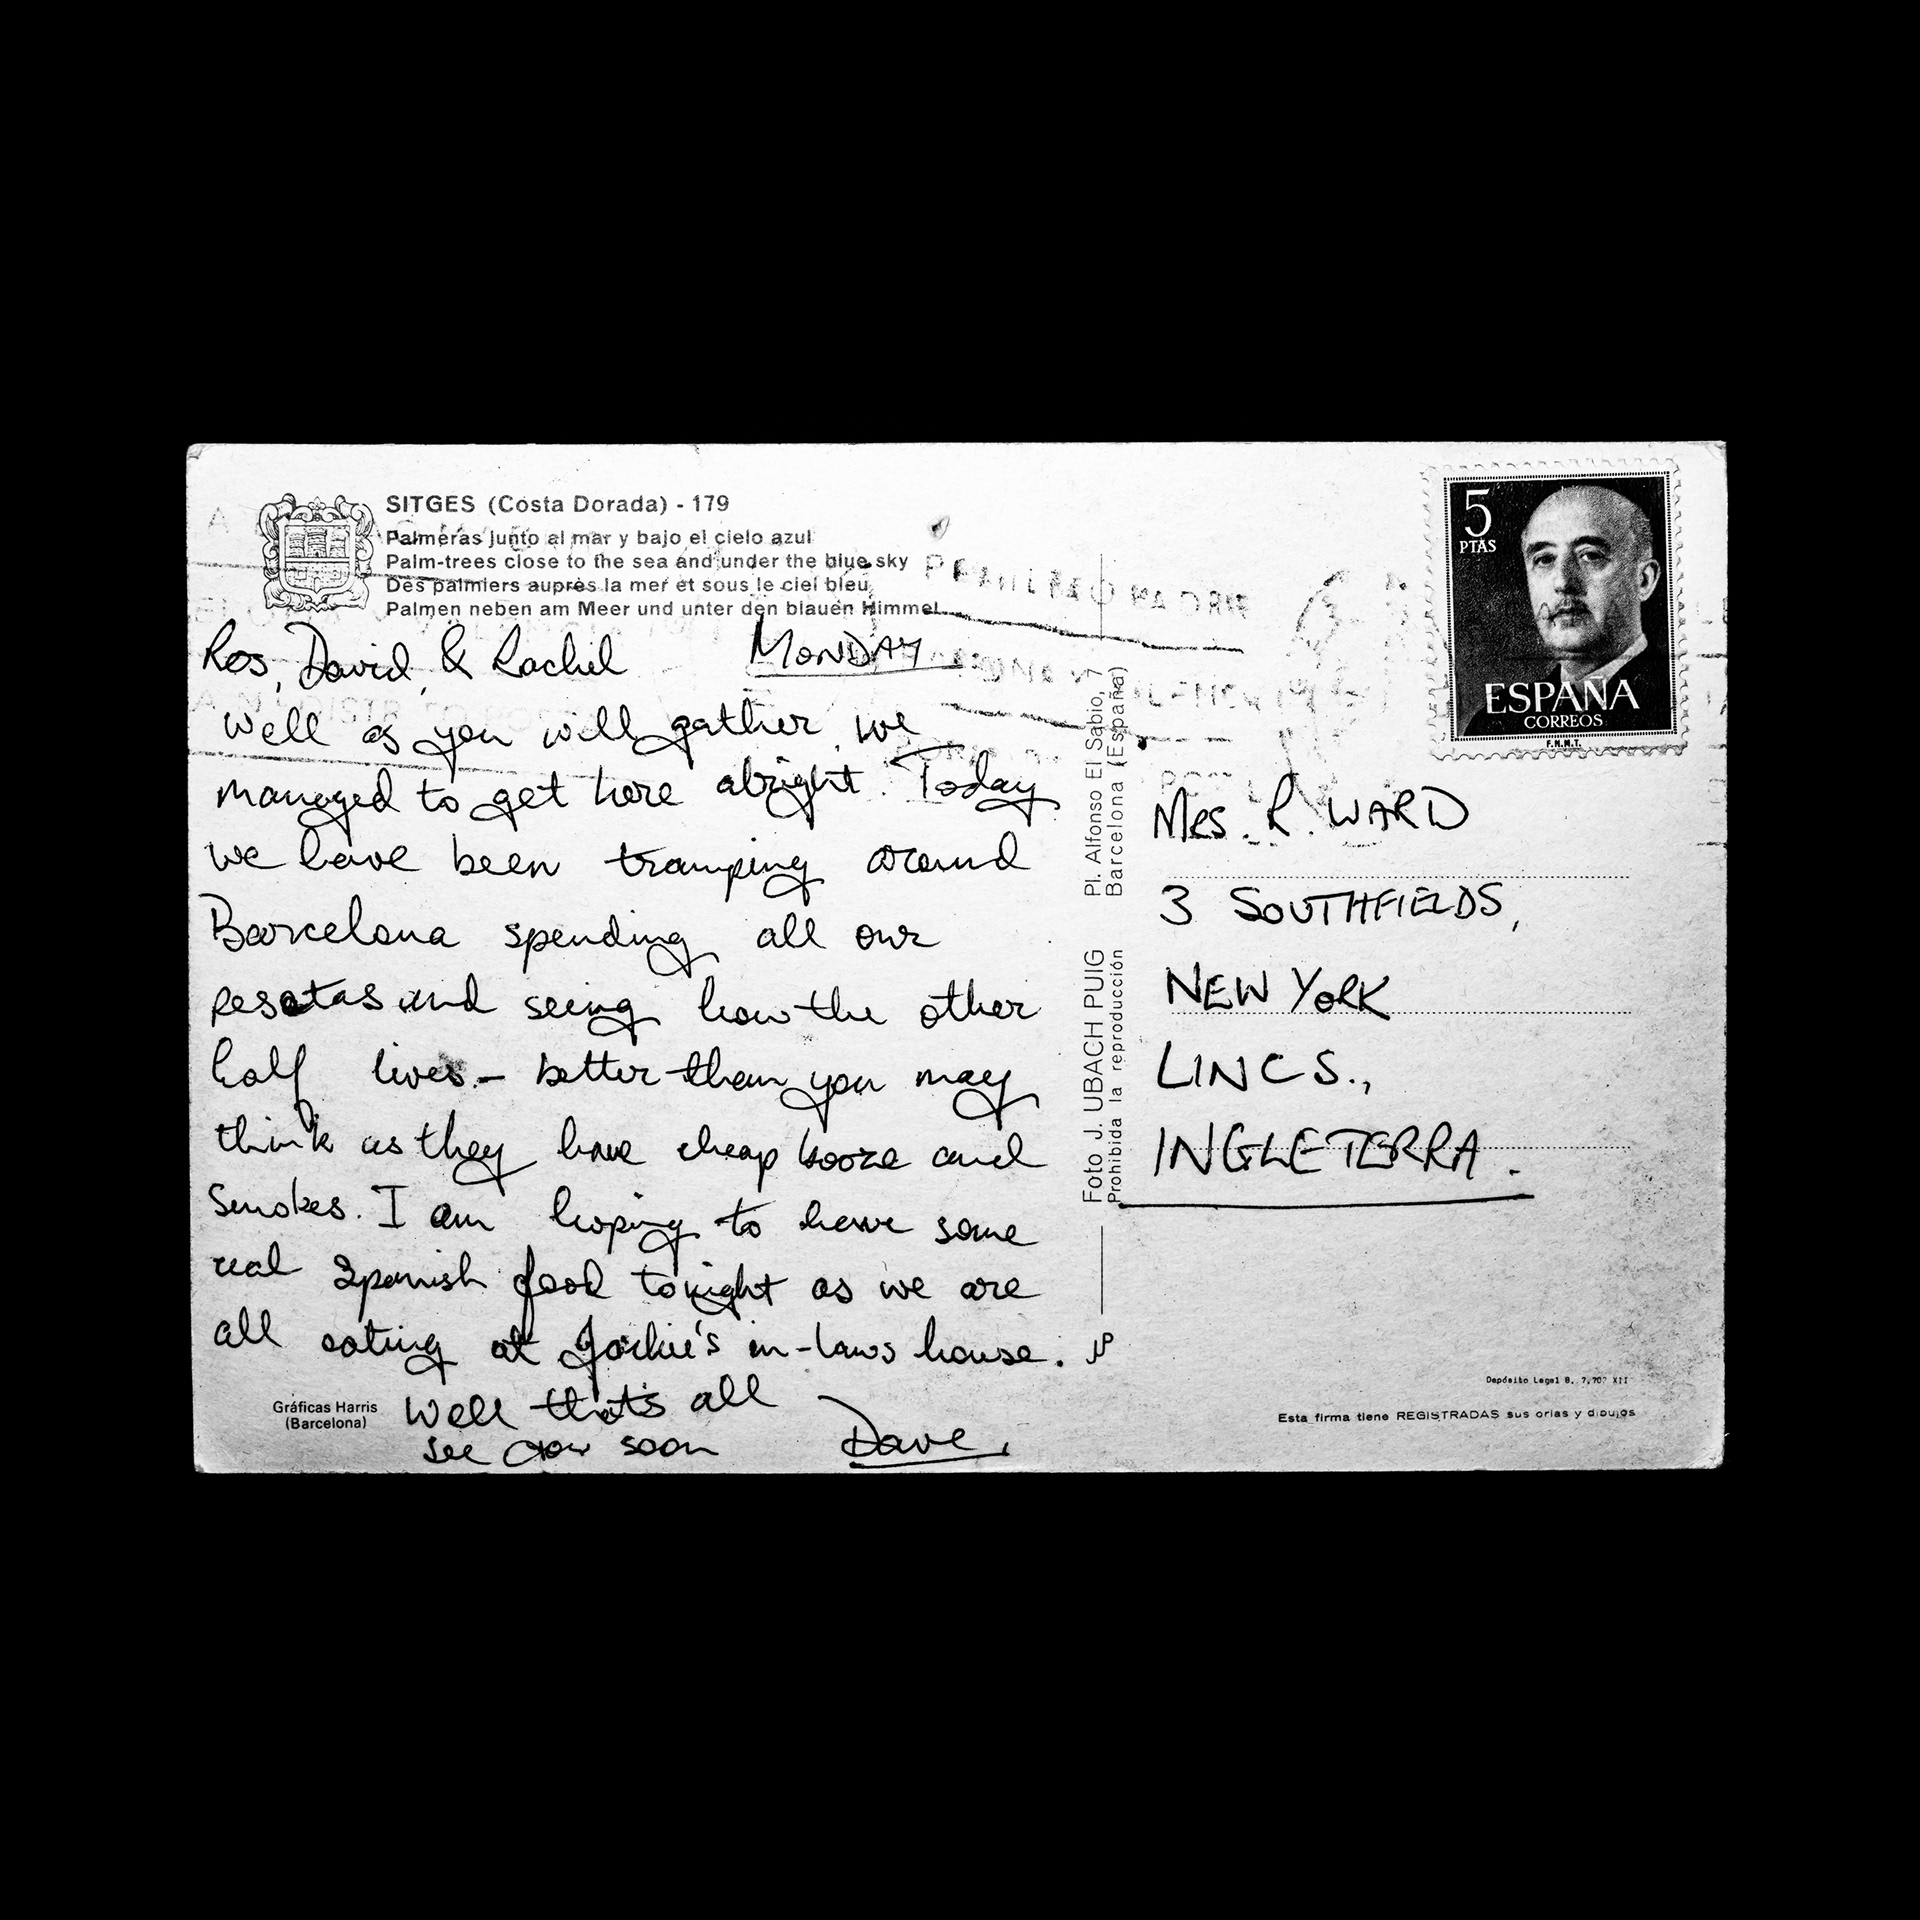 SITGES (Costa Dorada) - 179
Palmeras junto al mar y bajo el cielo azul
Palm-trees close to the sea and under the blue sky
Des palmiers auprès la mer et sous le ciel bleu
Palmen neben am Meer und unter den blauen Himmel
Ros, David, & Rachel MONDAY
Well as you will gather we
managed to get here alright. Today
we have been tramping around
Barcelona spending all our
pesetas and seeing how the other
half lives – better than you may
think as they have cheap booze and
smokes. I am hoping to have some
real Spanish food tonight as we are
all eating at Jackie's in-laws house.
Well thats all
see you soon Dave
Gráficas Harris
(Barcelona)
Foto J. UBACH PUIG Pl. Alfonso El Sabio, 7
Prohibida la reproducción Barcelona (España)
5
PTAS
ESPAÑA
CORREOS
F.N.M.T.
MRS. R. WARD
3 SOUTHFIELDS,
NEW YORK
LINCS.,
INGLETERRA.
Depósito Legal B. XII
Esta firma tiene REGISTRADAS sus orlas y dibujos